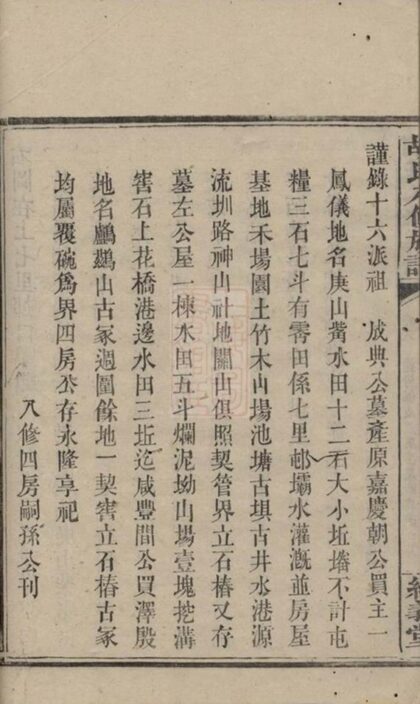 謹錄十六派祖 成典公墓產原嘉慶朝公買主一
鳳儀地名庚山嵛水田十二石大小坵墦不計屯
糧三石七斗有零田係七里邨壩水灌溉並房屋
基地禾場園土竹木山場池塘古垻古井水港源
流圳路神山社地關山俱照契管界立石樁又存
墓左公屋一棟水田五斗爛泥坳山場壹塊挖溝
窖石上花橋港邊水田三坵迄咸豐間公買澤殷
地名鸕鷀山古冢週圍餘地一契窖立石樁古冢
均屬覆碗為界四房公存永隆享祀
八修四房嗣孫公刊
胡氏八修族譜